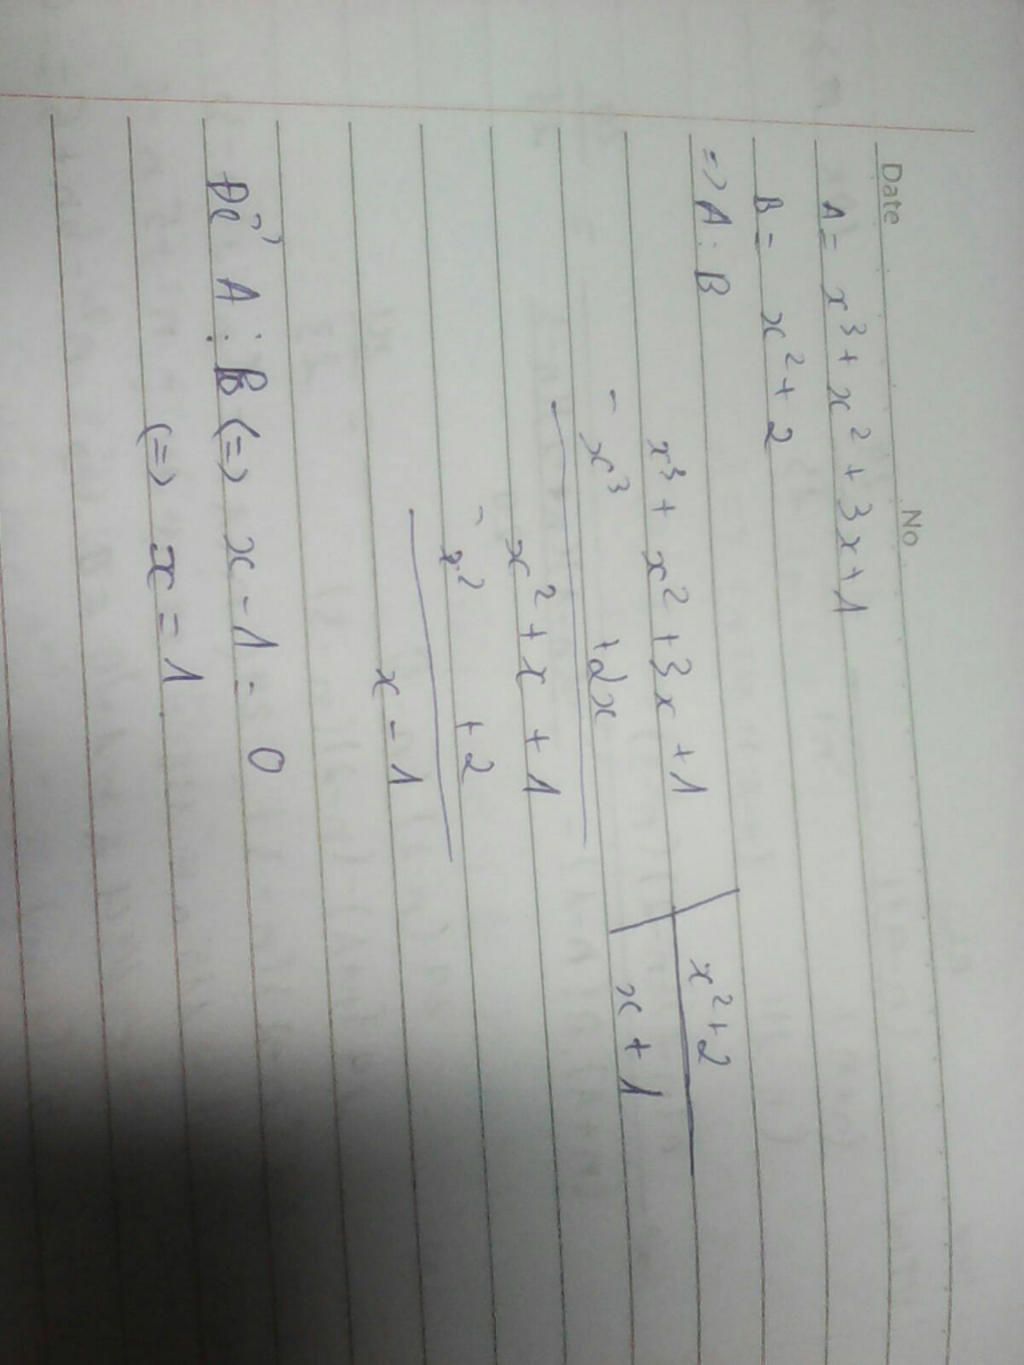 Date No
A = x³ + x² + 3x + 1
B = x² + 2
=> A : B
x³ + x² + 3x + 1 | x² + 2
- x³ + 2x | x + 1
x² + x + 1
- x² + 2
x - 1
Để A ⋮ B (=> x - 1 = 0
(=> x = 1